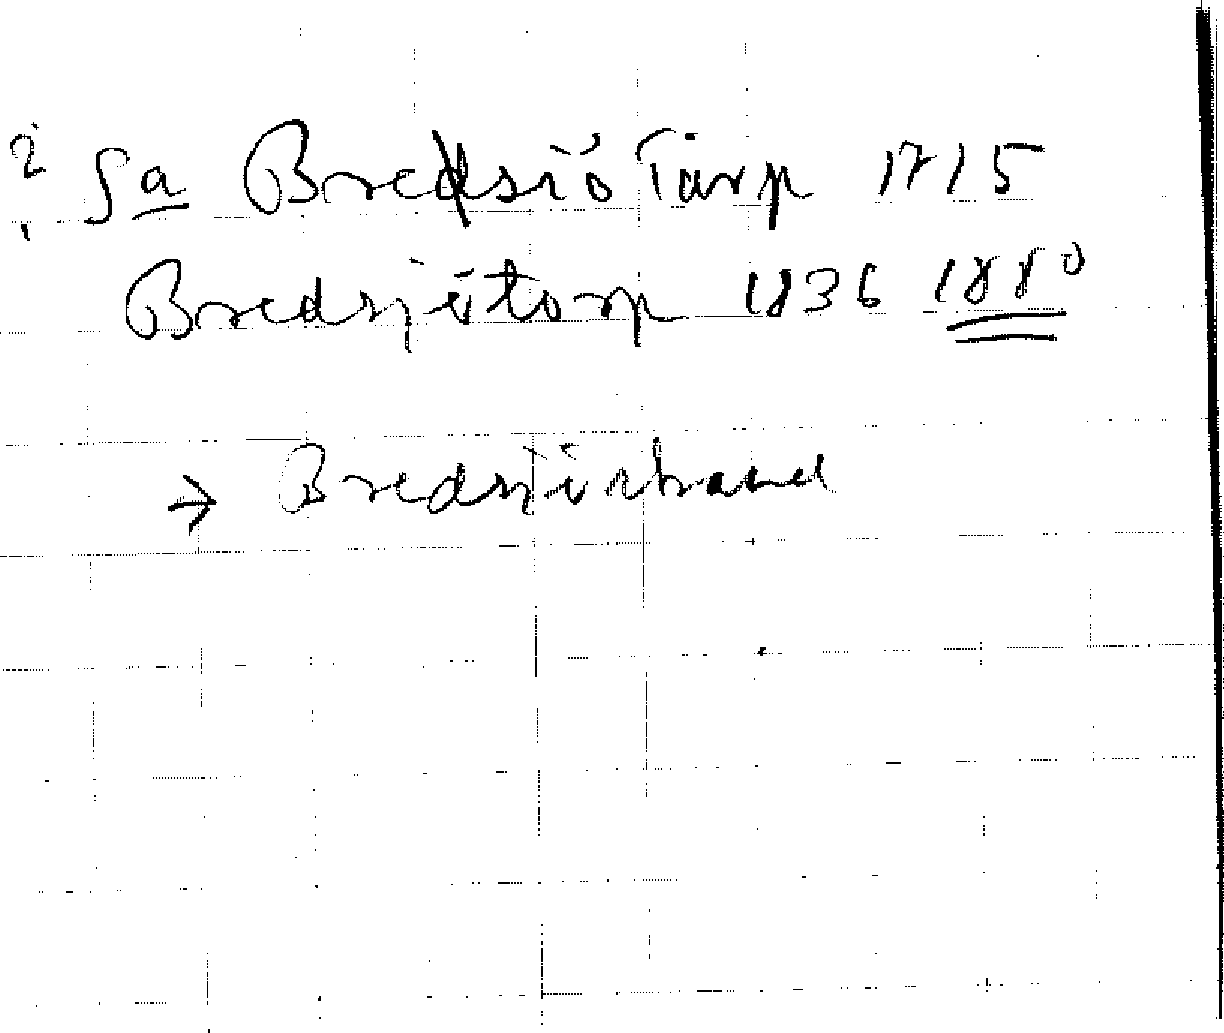 ? Sa Bredsiö Tarp 1715
Bredsjötorp 1836 1880
→ Bredsjöstrand